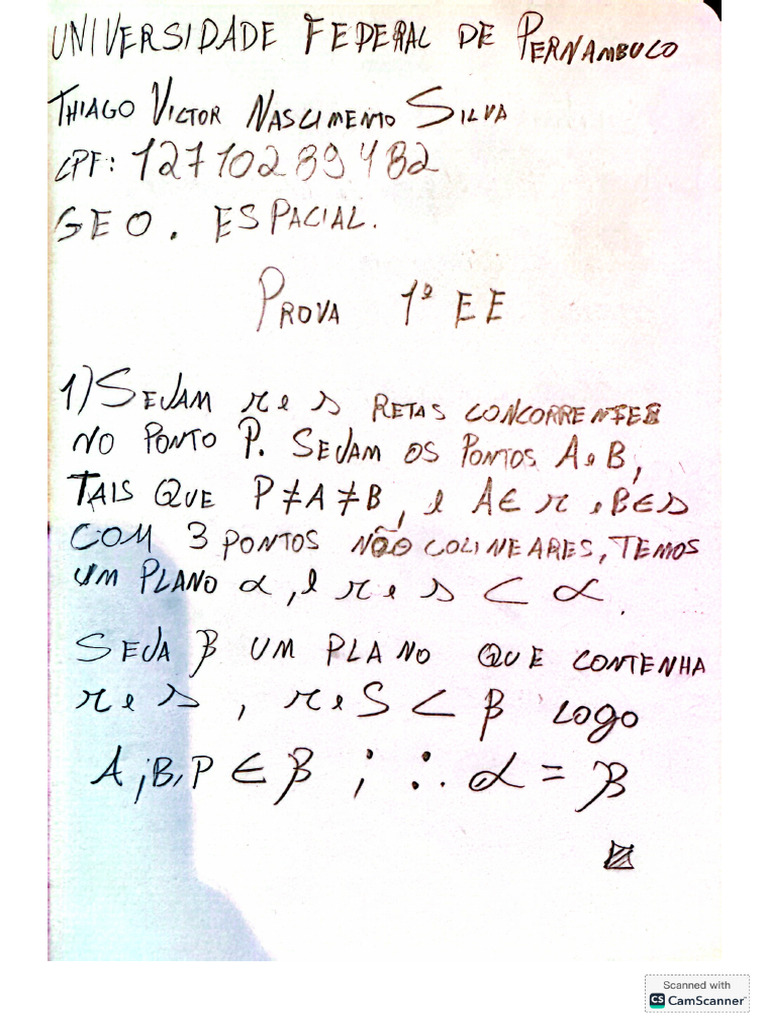 UNIVERSIDADE FEDERAL DE PERNAMBUCO
THIAGO VICTOR NASCIMENTO SILVA
CPF: 12710289482
GEO. ESPACIAL.
PROVA 1º EE
1) SEJAM r e s RETAS CONCORRENTES
NO PONTO P. SEJAM OS PONTOS A e B,
TAIS QUE P ≠ A ≠ B, e A ∈ r e B ∈ s
COM 3 PONTOS NÃO COLINEARES, TEMOS
UM PLANO α, e r e s ⊂ α.
SEJA β UM PLANO QUE CONTENHA
r e s, r e s ⊂ β LOGO
A, B, P ∈ β ; ∴ α = β
Scanned with
CS CamScanner